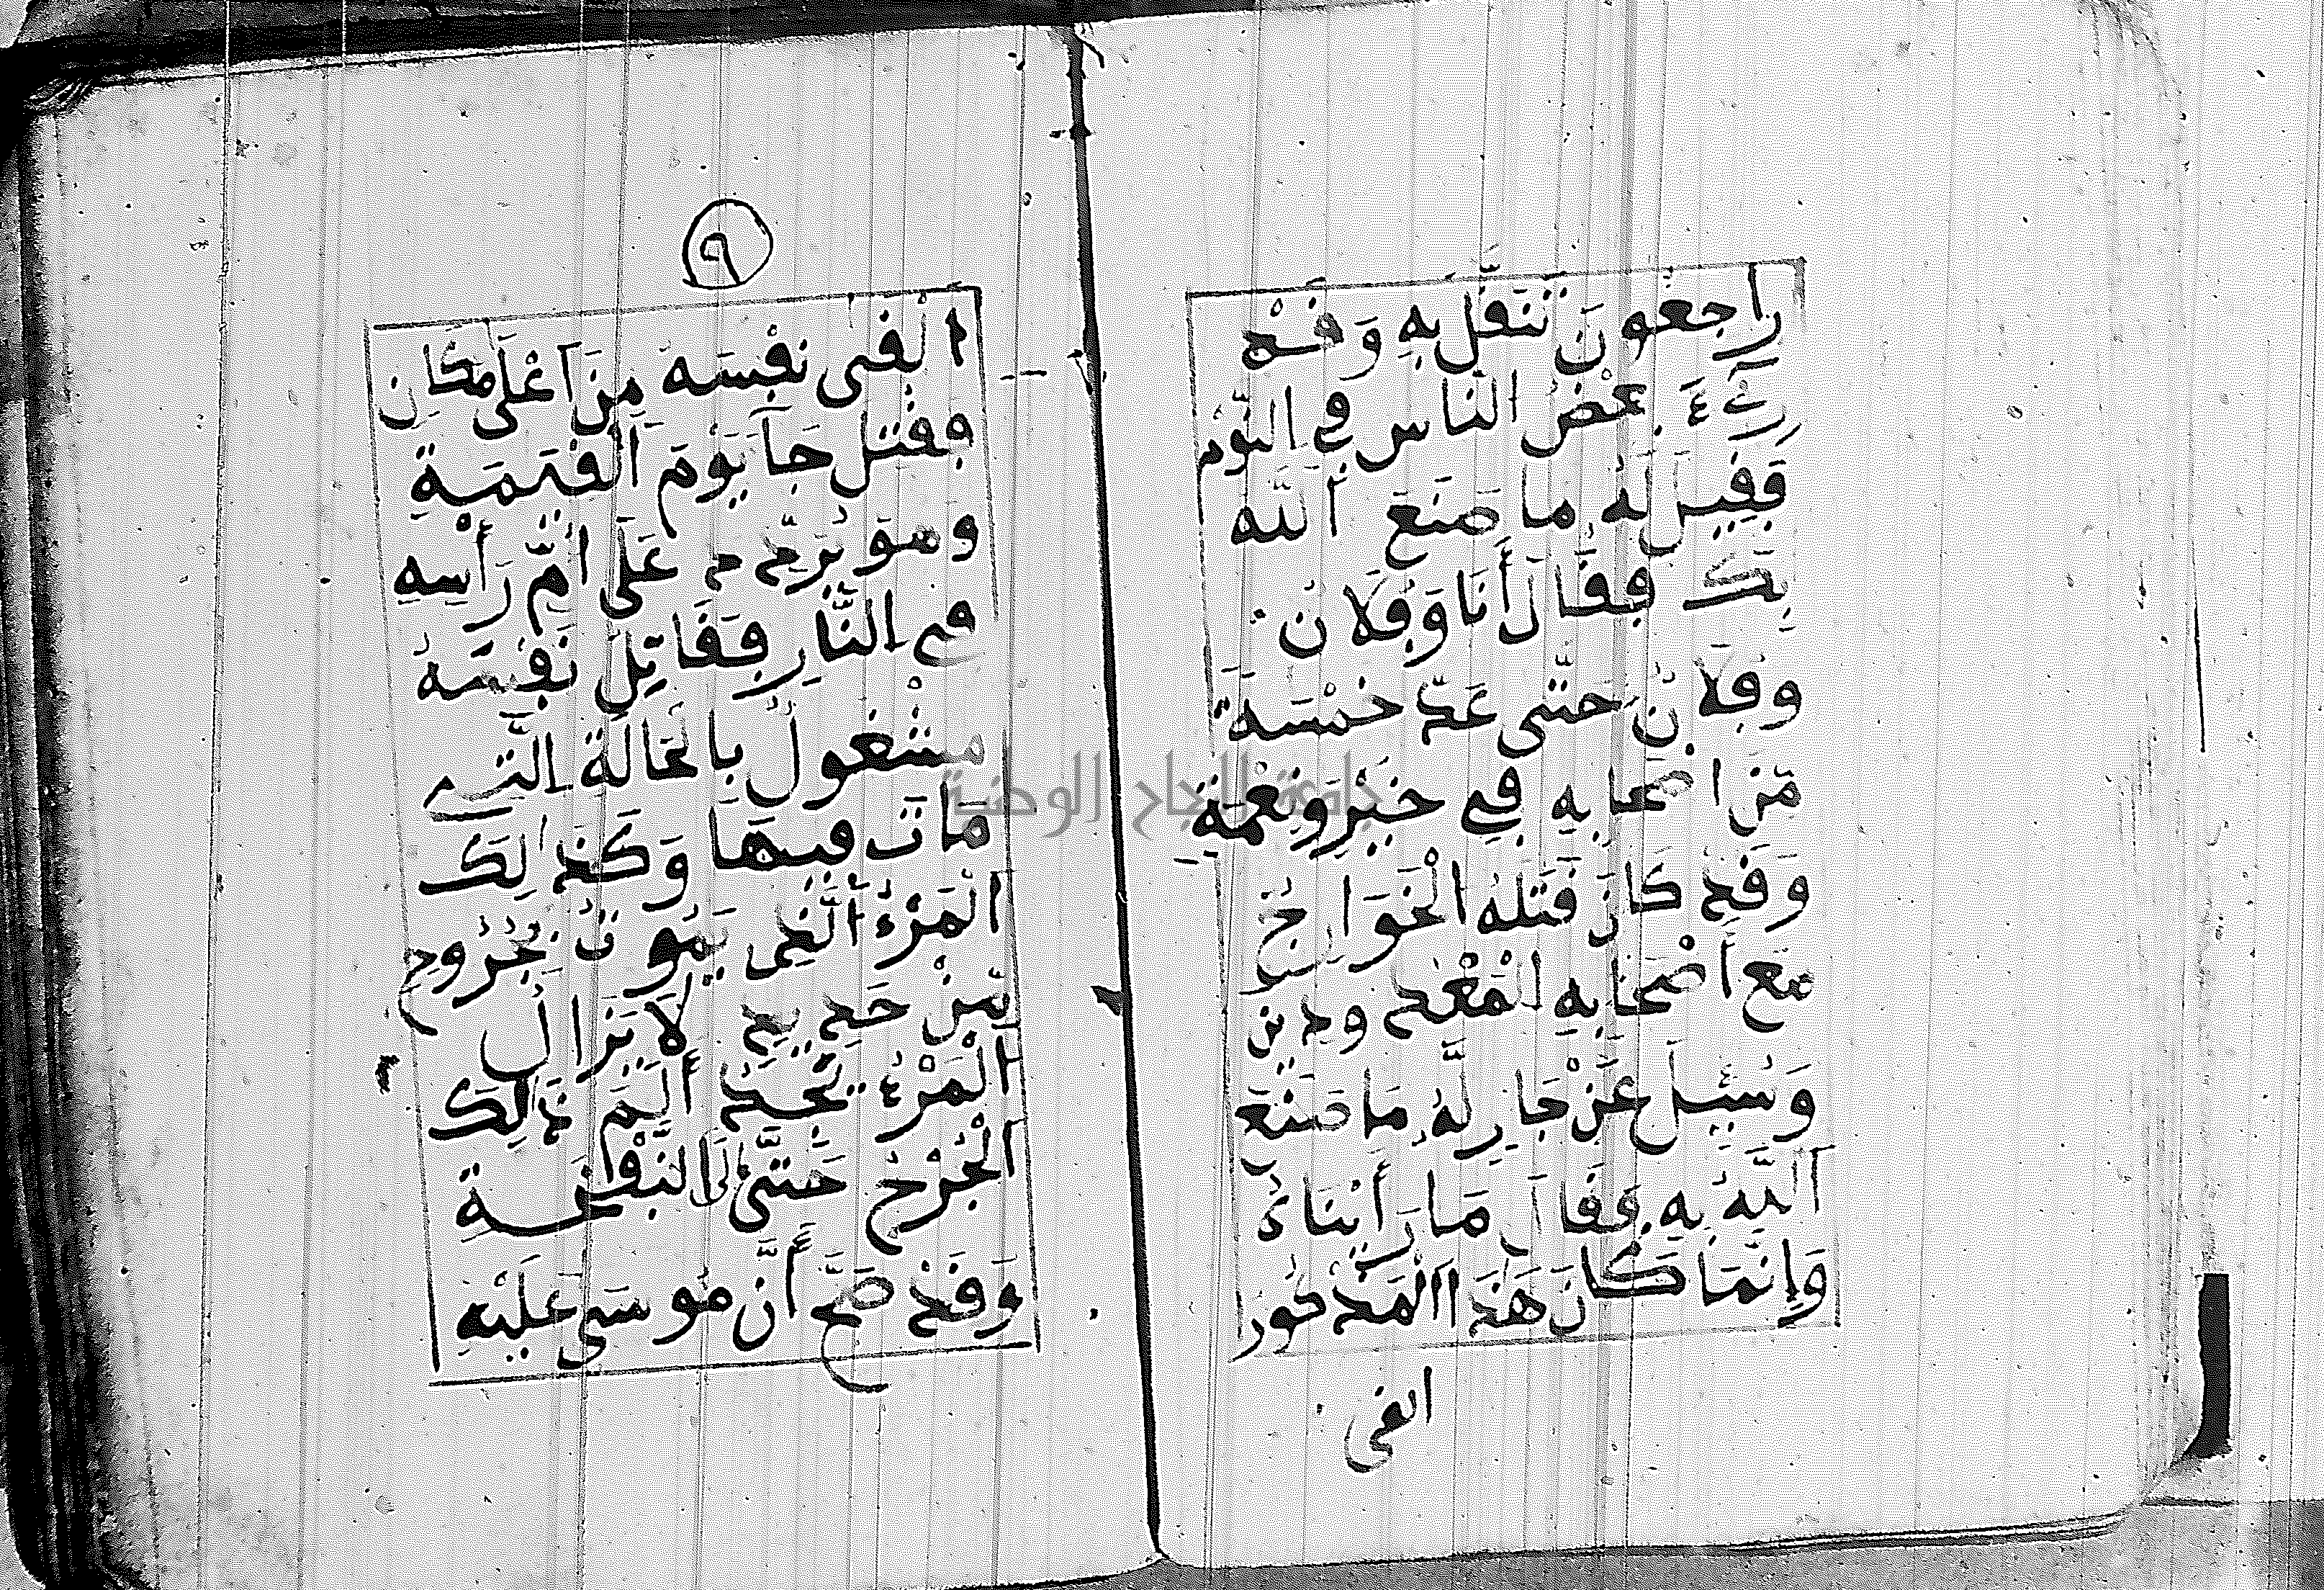 رَاجِعُونَ تَنَقَّلَ بِهِ وَقَدْ
رُءِيَ بَعْضُ النَّاسِ فِي النَّوْمِ
فَقِيلَ لَهُ مَا صَنَعَ اَللَّه
بِكَ فَقَالَ أَنَا وَفُلَانٌ
وَفُلَانٌ حَتَّى عَدَّ خَمْسَةً
مِّنَ اصْحَابِهِ فِي خَيْرٍ وَنِعْمَةٍ
وَقَدْ كَانَ قَتَلَهُ الْخَوَارِجُ
مَعَ أَصْحَابِهِ الْمَعْدُودِينَ
وَسُئِلَ عَنْ جَارٍ لَّهُ مَا صَنَعَ
اَللَّهُ بِهِ فَقَالَ مَا رَأَيْنَاهُ
وَإِنَّمَا كَانَ هَذَا الْمَذْكُور
القى
٩
اَلْقَى نَفْسَهُ مِنَ اَعْلَى مَكَانٍ
فَقُتِلَ جَآءَ يَوْمَ اَلْقِيَمَةِ
وَهُوَ يَتَرَدَّى عَلَى أُمِّ رَأْسِهِ
فِي النَّارِ فَقَاتِلُ نَفْسِهِ
مَشْغُولٌ بِالْحَالَةِ الَّتِي
مَاتَ فِيهَا وَكَذَالِكَ
اَلْمَرْءُ اَلَّذِي يَمُوتُ بِجُرْوحٍ
مِّنْ حَدِيدٍ لَا يَزَالُ
اَلْمَرْءُ يَجِدُ أَلَمَ ذَالِكَ
اَلْجُرْحِ حَتَّى إِلَى النَّفْخَةِ
وَقَدْ صَحَّ أَنَّ مُوسَى عَلَيْهِ
جامعة النجاح الوطنية